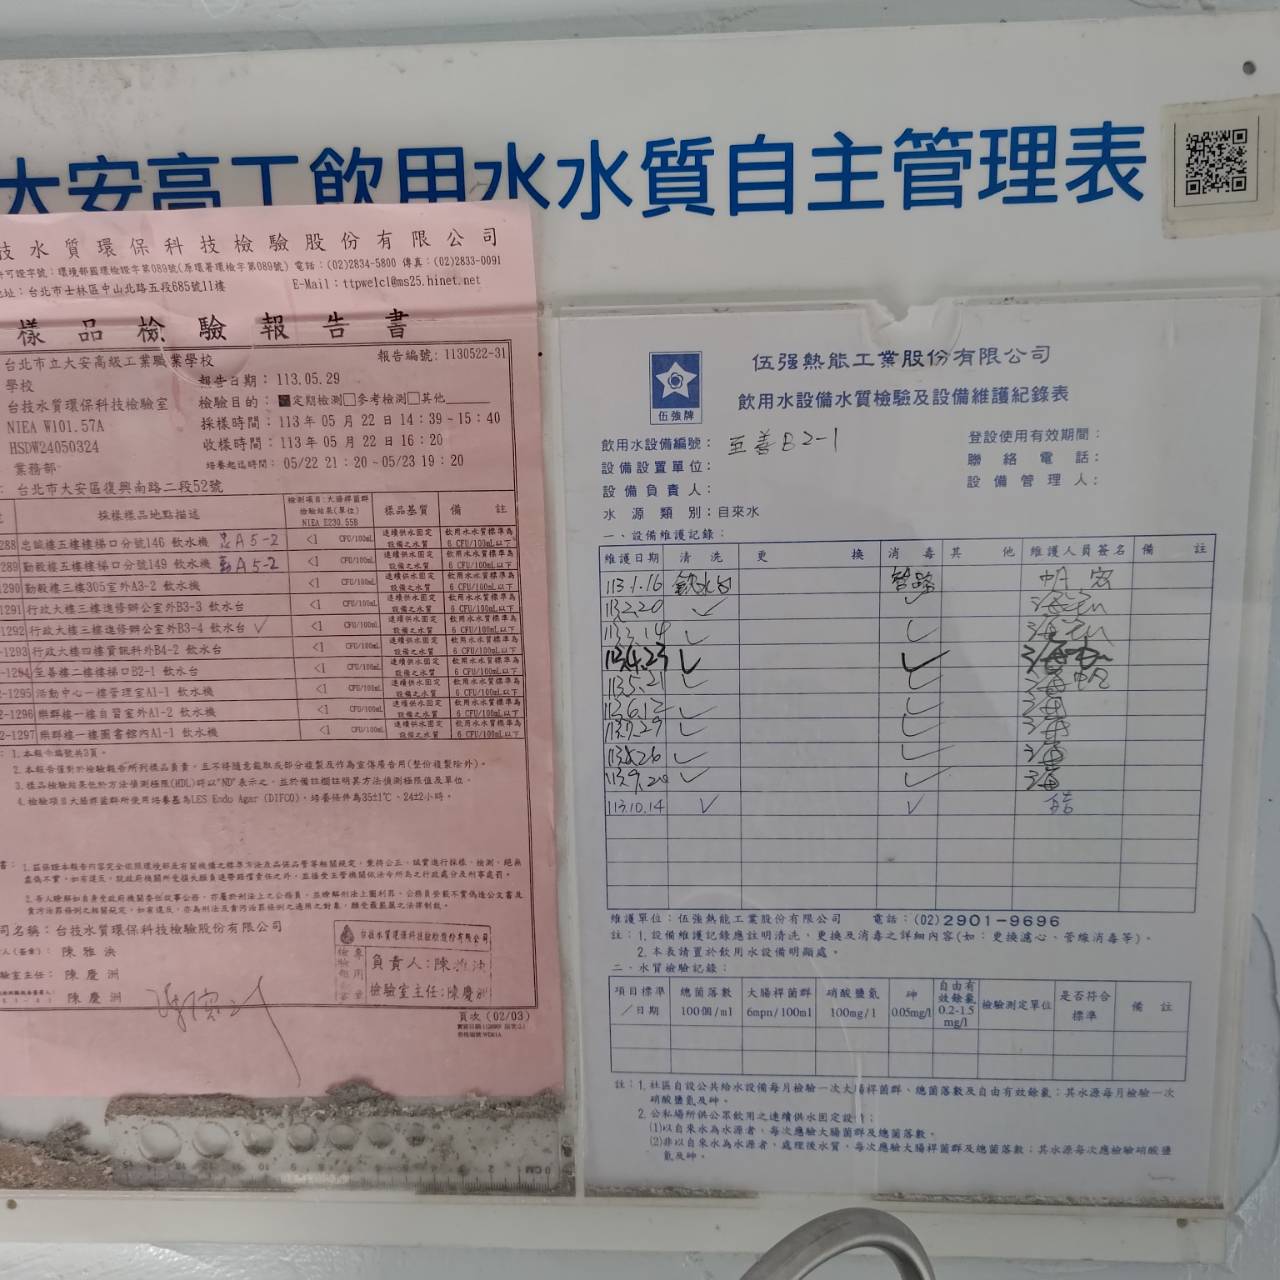 大安高工飲用水水質自主管理表
技水質環保科技檢驗股份有限公司
許可證字號：環境部國環檢證字第089號(原環署環檢字第089號) 電話：(02)2834-5800 傳真：(02)2833-0091
地址：台北市士林區中山北路五段685號11樓 E-Mail：ttpwelcl@ms25.hinet.net
樣品檢驗報告書
台北市立大安高級工業職業學校 報告編號：1130522-31
學校 報告日期：113.05.29
台技水質環保科技檢驗室 檢驗目的：■定期檢測□參考檢測□其他
NIEA W101.57A 採樣時間：113年05月22日14:39~15:40
HSDW24050324 收樣時間：113年05月22日16:20
業務部 培養起迄時間：05/22 21:20~05/23 19:20
台北市大安區復興南路二段52號
採樣樣品地點描述 檢測項目：大腸桿菌群 檢驗結果(單位) NIEA E230.55B 樣品基質 備註
288 忠誠樓五樓樓梯口分號146 飲水機 忠A5-2 <1 CFU/100mL 連續供水固定設備之水質 飲用水水質標準為6 CFU/100mL以下
289 勤毅樓五樓樓梯口分號149 飲水機 勤A5-2 <1 CFU/100mL 連續供水固定設備之水質 飲用水水質標準為6 CFU/100mL以下
1290 勤毅樓三樓305室外A3-2 飲水機 <1 CFU/100mL 連續供水固定設備之水質 飲用水水質標準為6 CFU/100mL以下
1291 行政大樓三樓進修辦公室外B3-3 飲水台 <1 CFU/100mL 連續供水固定設備之水質 飲用水水質標準為6 CFU/100mL以下
1292 行政大樓三樓進修辦公室外B3-4 飲水台 ✓ <1 CFU/100mL 連續供水固定設備之水質 飲用水水質標準為6 CFU/100mL以下
-1293 行政大樓四樓資訊科外B4-2 飲水台 <1 CFU/100mL 連續供水固定設備之水質 飲用水水質標準為6 CFU/100mL以下
-1294 至善樓二樓樓梯口B2-1 飲水台 <1 CFU/100mL 連續供水固定設備之水質 飲用水水質標準為6 CFU/100mL以下
2-1295 活動中心一樓管理室A1-1 飲水機 <1 CFU/100mL 連續供水固定設備之水質 飲用水水質標準為6 CFU/100mL以下
2-1296 樂群樓一樓自習室外A1-2 飲水機 <1 CFU/100mL 連續供水固定設備之水質 飲用水水質標準為6 CFU/100mL以下
2-1297 樂群樓一樓圖書館內A1-1 飲水機 <1 CFU/100mL 連續供水固定設備之水質 飲用水水質標準為6 CFU/100mL以下
1.本報告編號共3頁。
2.本報告僅對於檢驗報告所列樣品負責，且不得隨意截取或部分複製及作為宣傳廣告用(整份複製除外)。
3.樣品檢驗結果低於方法偵測極限(MDL)時以"ND"表示之，並於備註欄註明其方法偵測極限值及單位。
4.檢驗項目大腸桿菌群所使用培養基為LES Endo Agar (DIFCO)，培養條件為35±1℃、24±2小時。
司名稱：台技水質環保科技檢驗股份有限公司
人(簽章)：陳雅泱
驗室主任：陳慶洲
陳慶洲
台技水質環保科技檢驗股份有限公司
負責人：陳雅泱
檢驗室主任：陳慶洲
頁次(02/03)
伍強牌
伍強熱能工業股份有限公司
飲用水設備水質檢驗及設備維護紀錄表
飲用水設備編號：至善B2-1 登設使用有效期間：
設備設置單位： 聯絡電話：
設備負責人： 設備管理人：
水源類別：自來水
一、設備維護記錄：
維護日期 清洗 更換 消毒 其他 維護人員簽名 備註
113.1.16 飲水台 管路
113.2.20 ✓ ✓
113.3.14 ✓ ✓
113.4.23 ✓ ✓
113.5.21 ✓ ✓
113.6.12 ✓ ✓
113.7.29 ✓ ✓
113.8.26 ✓ ✓
113.9.20 ✓ ✓
113.10.14 ✓ ✓
維護單位：伍強熱能工業股份有限公司 電話：(02)2901-9696
註：1.設備維護記錄應註明清洗、更換及消毒之詳細內容(如：更換濾心、管線消毒等)。
2.本表請置於飲用水設備明顯處。
二、水質檢驗記錄：
項目標準／日期 總菌落數 100個/ml 大腸桿菌群 6mpn/100ml 硝酸鹽氮 100mg/l 砷 0.05mg/l 自由有效餘氯 0.2-1.5 mg/l 檢驗測定單位 是否符合標準 備註
註：1.社區自設公共給水設備每月檢驗一次大腸桿菌群、總菌落數及自由有效餘氯；其水源每月檢驗一次
硝酸鹽氮及砷。
2.公私場所供公眾飲用之連續供水固定設備：
(1)以自來水為水源者，每次應驗大腸桿菌群及總菌落數。
(2)非以自來水為水源者，處理後水質，每次應驗大腸桿菌群及總菌落數；其水源每次應檢驗硝酸鹽
氮及砷。